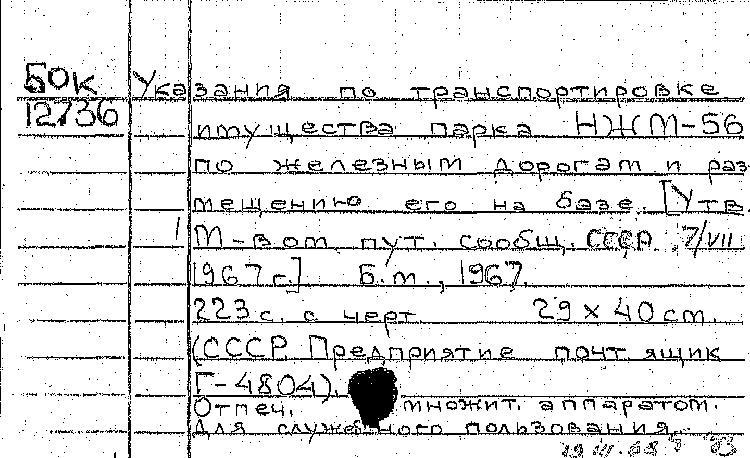 БОК
12/36
Указания по транспортировке
имущества парка НЖМ-56
по железным дорогам и раз
мещению его на базе. [Утв.
М-вом пут. сообщ. СССР 7/VII
1967 г.]. Б.м., 1967.
223 с. с черт. 29 х 40 см.
(СССР. Предприятие почт. ящик
Г-4804).
Отпеч. множит. аппаратом.
Для служебного пользования.